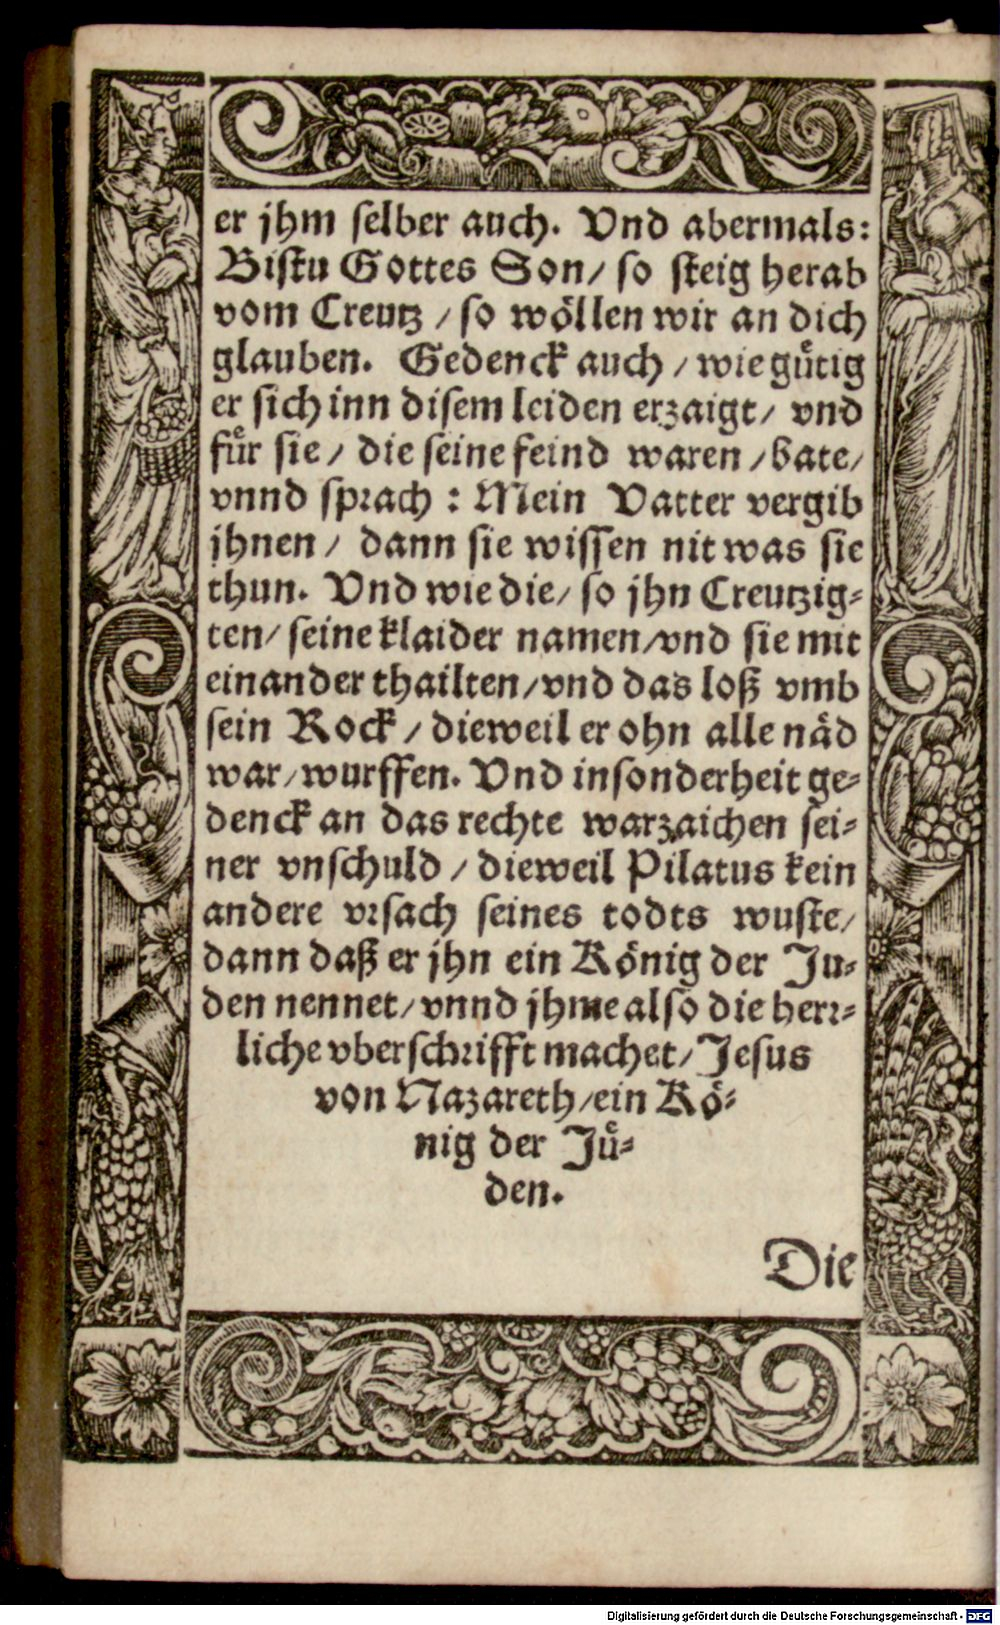 er jhm selber auch. Vnd abermals:
Bistu Gottes Son/ so steig herab
vom Creutz / so wöllen wir an dich
glauben. Gedenck auch / wie gůtig
er sich inn disem leiden erzaigt/ vnd
fůr sie / die seine feind waren / bate/
vnnd sprach : Mein Vatter vergib
jhnen / dann sie wissen nit was sie
thun. Vnd wie die/ so jhn Creutzig-
ten/ seine klaider namen/vnd sie mit
einander thailten/vnd das loß vmb
sein Rock / dieweil er ohn alle näd
war/wurffen. Vnd insonderheit ge-
denck an das rechte warzaichen sei-
ner vnschuld / dieweil Pilatus kein
andere vrsach seines todts wuste/
dann daß er jhn ein König der Ju-
den nennet/vnnd jhme also die herr-
liche vberschrifft machet/Jesus
von Nazareth/ein Kö-
nig der Jů-
den.
Die
Digitalisierung gefördert durch die Deutsche Forschungsgemeinschaft - DFG